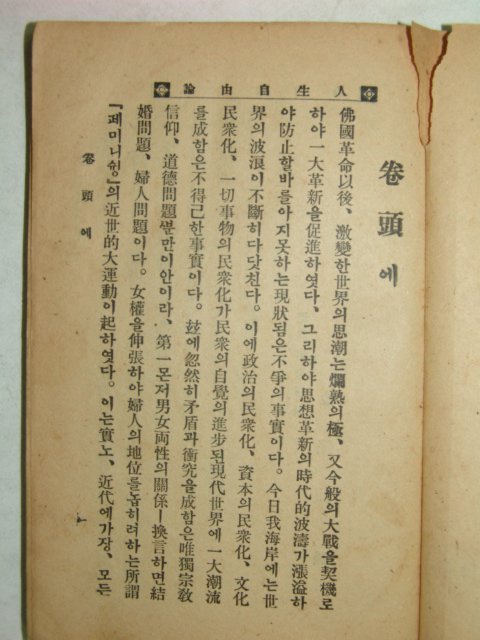 論由自生人
卷頭에
佛國革命以後、激變한世界의思潮는爛熟의極、又今般의大戰을契機로
하야一大革新을促進하엿다、그리하야思想革新의時代的波濤가漲溢하
야防止할바를아지못하는現狀됨은不爭의事實이다。今日我海岸에는世
界의波浪이不斷히다닷친다。이에政治의民衆化、資本의民衆化、文化
民衆化、一切事物의民衆化가民衆의自覺의進步된現代世界에一大潮流
를成함은不得已한事實이다。玆에忽然히矛盾과衝究을成함은唯獨宗敎
信仰、道德問題ᄲᅮᆫ만이안이라、第一몬저男女両性의關係ㅣ換言하면結
婚問題、婦人問題이다。女權을伸張하야婦人의地位를놉히려하는所謂
『ᅋᅦ미니슴』의近世的大運動이起하엿다。이는實노、近代에가장、모든
卷頭에